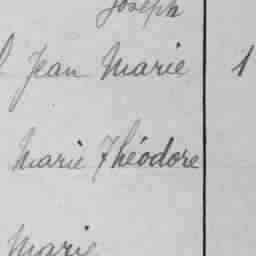 Joseph
Jean Marie 1
Marie Théodore
Marie